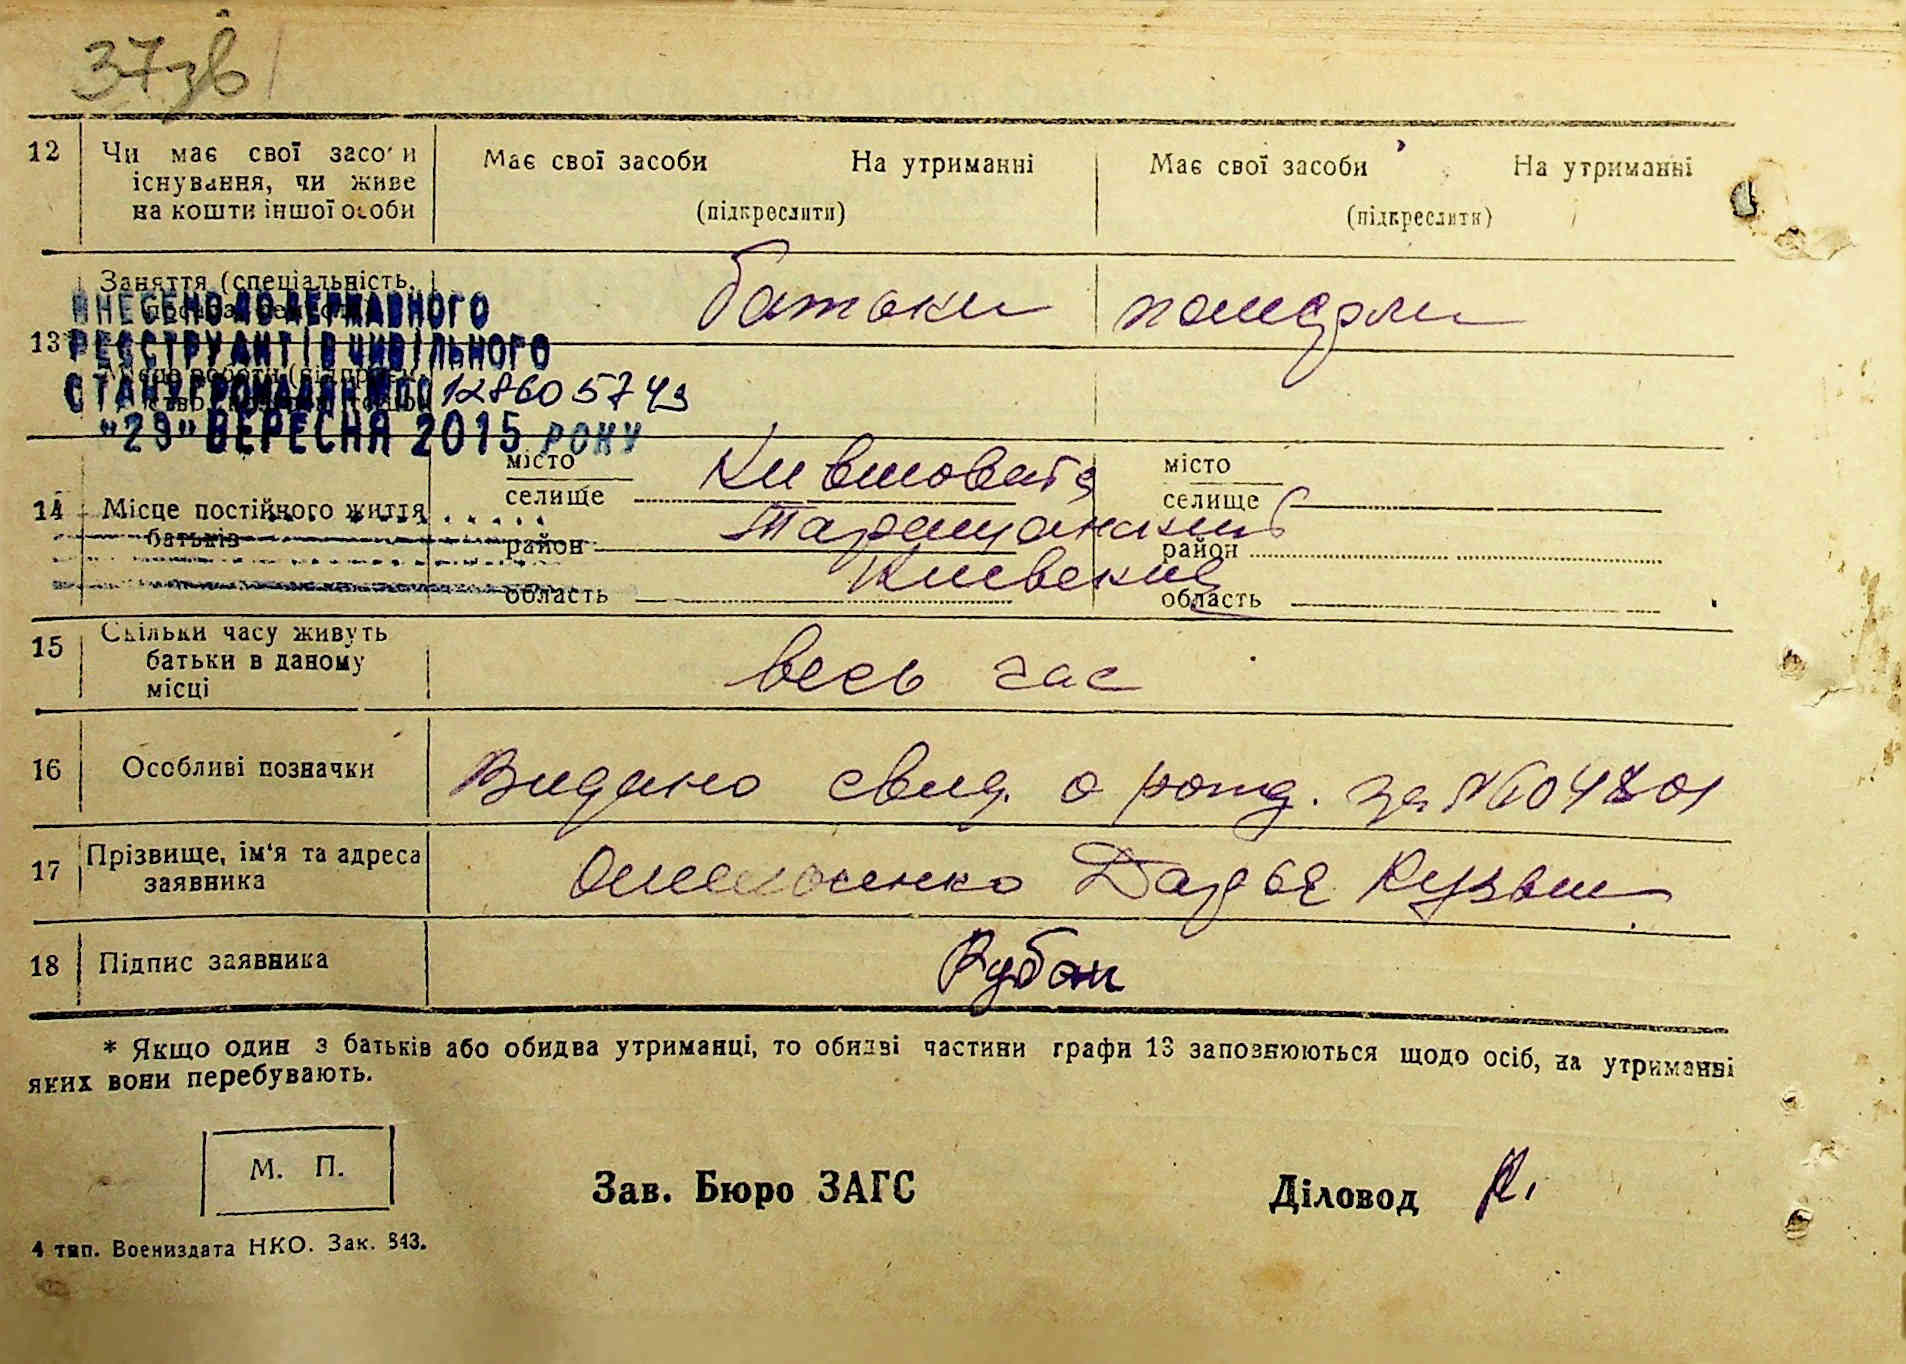 37зв
12 Чи має свої засоби Має свої засоби На утриманні Має свої засоби На утриманні
існування, чи живе
на кошти іншої особи (підкреслити) (підкреслити)
Заняття (спеціальність,
батьки померли
ВНЕСЕНО ДО ДЕРЖАВНОГО
13 РЕЄСТРУ АКТІВ ЦИВІЛЬНОГО
СТАНУ ГРОМАДЯН 12860 5743
"29" ВЕРЕСНЯ 2015 РОКУ
місто Кившовата місто
селище селище
14 Місце постійного життя
батьків
район Таращанский район
область Киевская область
15 Скільки часу живуть
батьки в даному весь час
місці
16 Особливі позначки Видано свид. о рожд. за № 04801
17 Прізвище, ім'я та адреса
заявника Дарья Кузьм
18 Підпис заявника Рубан
* Якщо один з батьків або обидва утриманці, то обидві частини графи 13 заповнюються щодо осіб, на утриманні
яких вони перебувають.
М. П.
Зав. Бюро ЗАГС Діловод
4 тип. Воениздата НКО. Зак. 843.